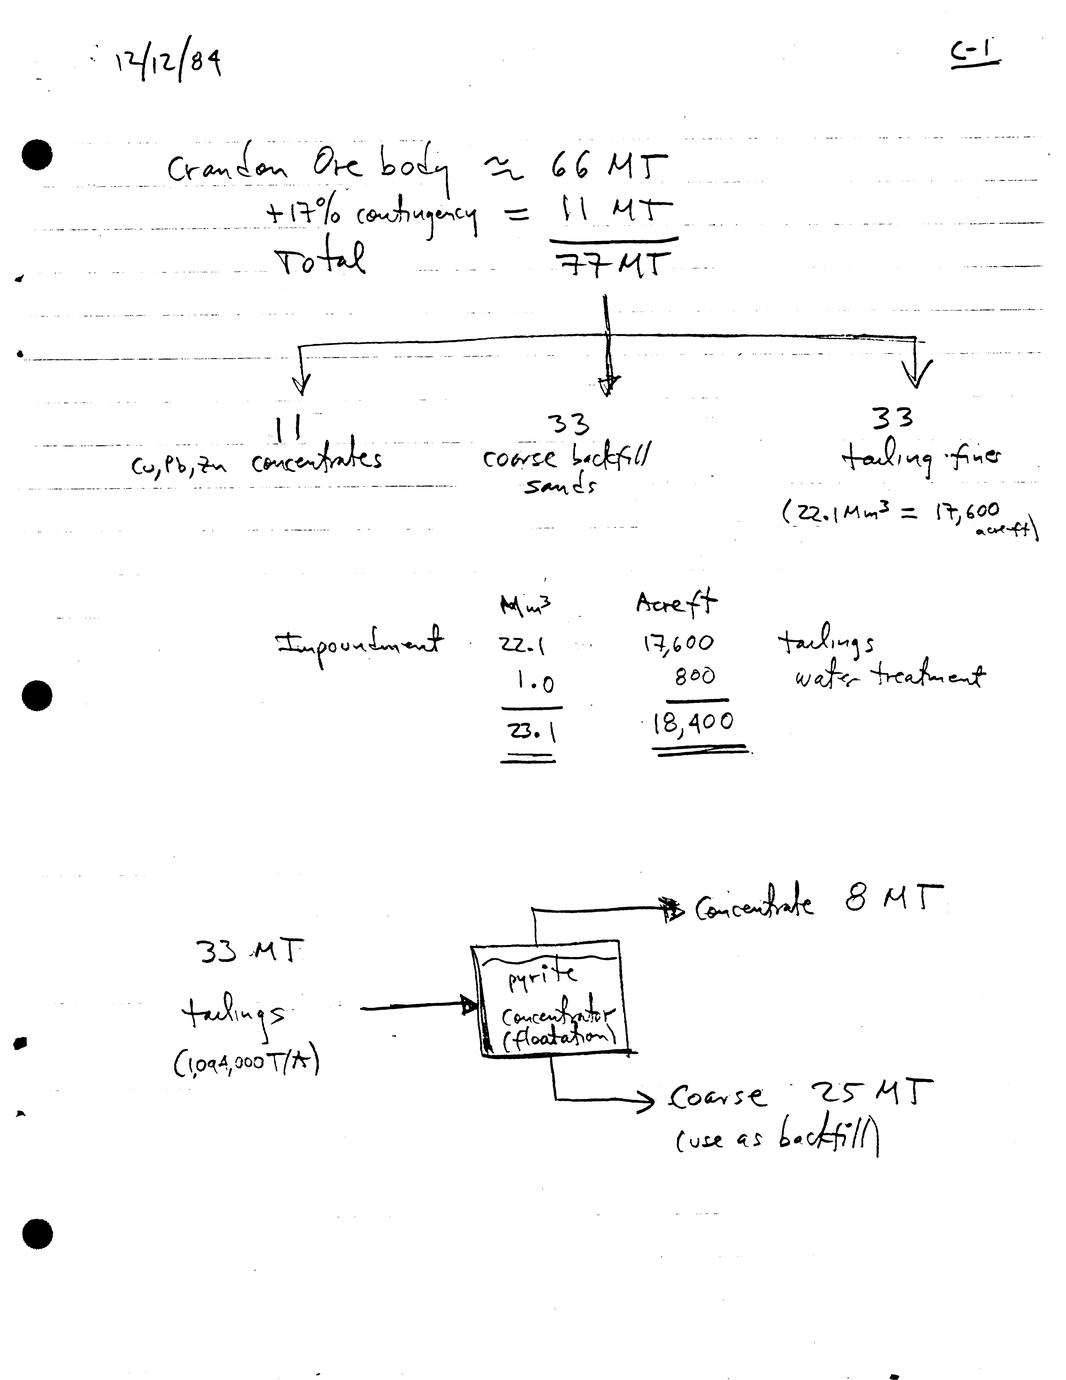 12/12/84
C-1
Crandon Ore body ≈ 66 MT
+17% contingency = 11 MT
Total 77 MT
11 33 33
Cu, Pb, Zn concentrates coarse backfill tailing fines
sands
(22.1 Mm³ = 17,600
acre-ft)
Mm³ Acreft
Impoundment 22.1 17,600 tailings
1.0 800 water treatment
23.1 18,400
Concentrate 8 MT
33 MT
pyrite
tailings
concentrator
(floatation)
(1,094,000 T/A)
Coarse 25 MT
(use as backfill)